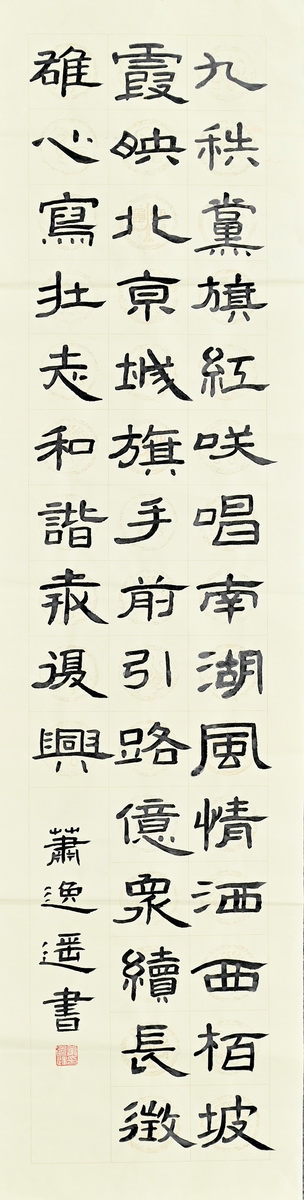 九秩黨旗紅咲唱南湖風情洒西栢坡
霞映北京城旗手前引路億衆續長徵
雄心寫壯志和諧報復興
蕭逸遥書